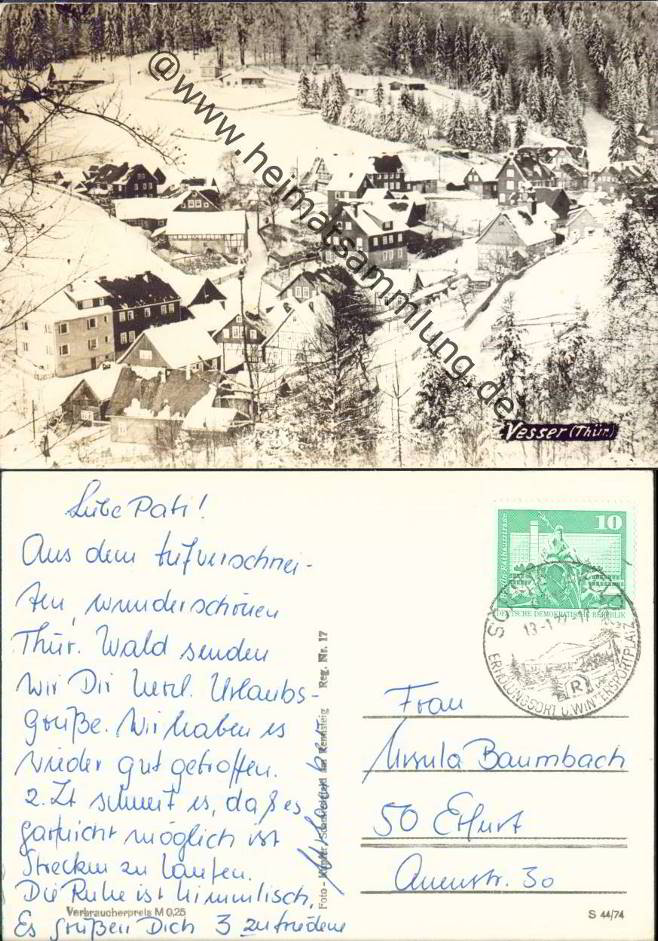 @www.heimatsammlung.de
Vesser (Thür.)
Liebe Pati!
Aus dem tiefverschnei-
ten, wunderschönen
Thür. Wald senden
wir Dir herzl. Urlaubs-
grüße. Wir haben es
wieder gut getroffen.
2. Zt schneit es, daß es
garnicht möglich ist
Strecken zu laufen.
Die Ruhe ist himmlisch.
Es grüßen Dich 3 zufriedene
Verbraucherpreis M 0,25
Foto - Rennsteig Reg. Nr. 17
10
DEUTSCHE DEMOKRATISCHE REPUBLIK
ERHOLUNGSORT U. WINTERSPORTPLATZ
(R)
Frau
Ursula Baumbach
50 Erfurt
Auenstr. 30
S 44/74